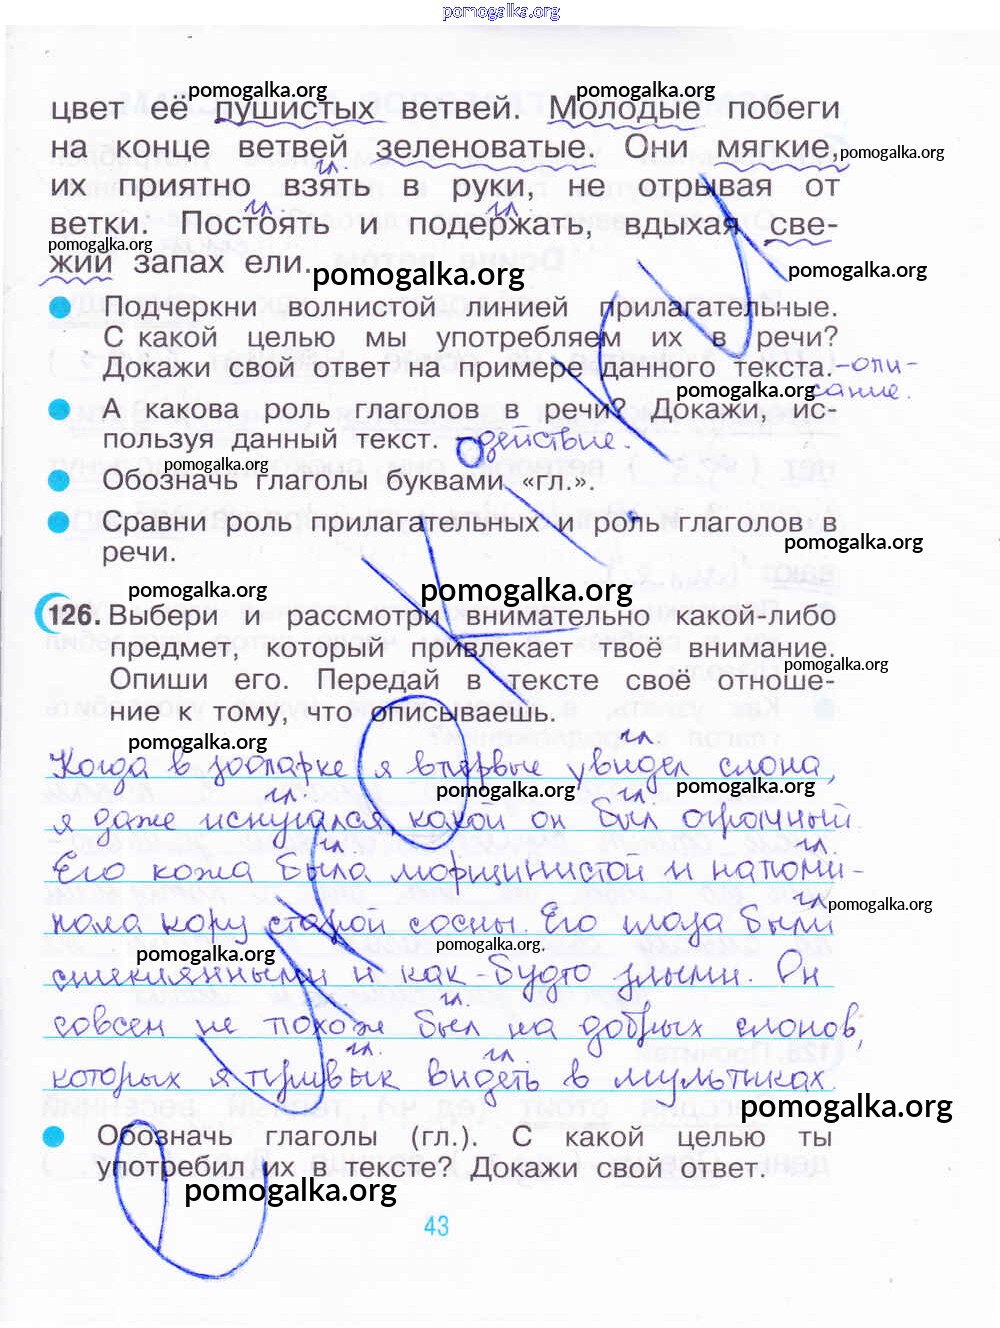 pomogalka.org
pomogalka.org pomogalka.org
цвет её пушистых ветвей. Молодые побеги
на конце ветвей зеленоватые. Они мягкие,
pomogalka.org
гл.
их приятно взять в руки, не отрывая от
гл. гл.
ветки. Постоять и подержать, вдыхая све-
pomogalka.org
жий запах ели.
pomogalka.org pomogalka.org
Подчеркни волнистой линией прилагательные.
С какой целью мы употребляем их в речи?
Докажи свой ответ на примере данного текста. - опи-
pomogalka.org
сание.
А какова роль глаголов в речи? Докажи, ис-
пользуя данный текст. - действие.
pomogalka.org
Обозначь глаголы буквами «гл.».
Сравни роль прилагательных и роль глаголов в
речи.
pomogalka.org
pomogalka.org pomogalka.org
126. Выбери и рассмотри внимательно какой-либо
предмет, который привлекает твоё внимание.
pomogalka.org
Опиши его. Передай в тексте своё отноше-
ние к тому, что описываешь.
pomogalka.org
гл.
Когда в зоопарке я впервые увидел слона,
pomogalka.org pomogalka.org
гл. гл.
я даже испугался, какой он был огромный.
гл. гл.
Его кожа была морщинистой и напоми-
гл.
pomogalka.org
нала кору старой сосны. Его глаза были
pomogalka.org pomogalka.org
стеклянными и как-будто злыми. Он
гл.
совсем не похож был на добрых слонов,
гл. гл.
которых я привык видеть в мультиках.
pomogalka.org
Обозначь глаголы (гл.). С какой целью ты
употребил их в тексте? Докажи свой ответ.
pomogalka.org
43